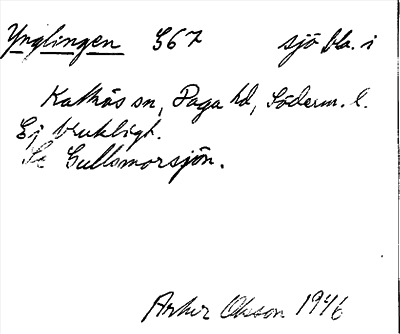 Ynglingen S67 sjö bl. a. i
Kattnäs sn, Daga hd, Söderm. l.
Ej brukligt.
Se Gullsmorsjön.
Olson 1946